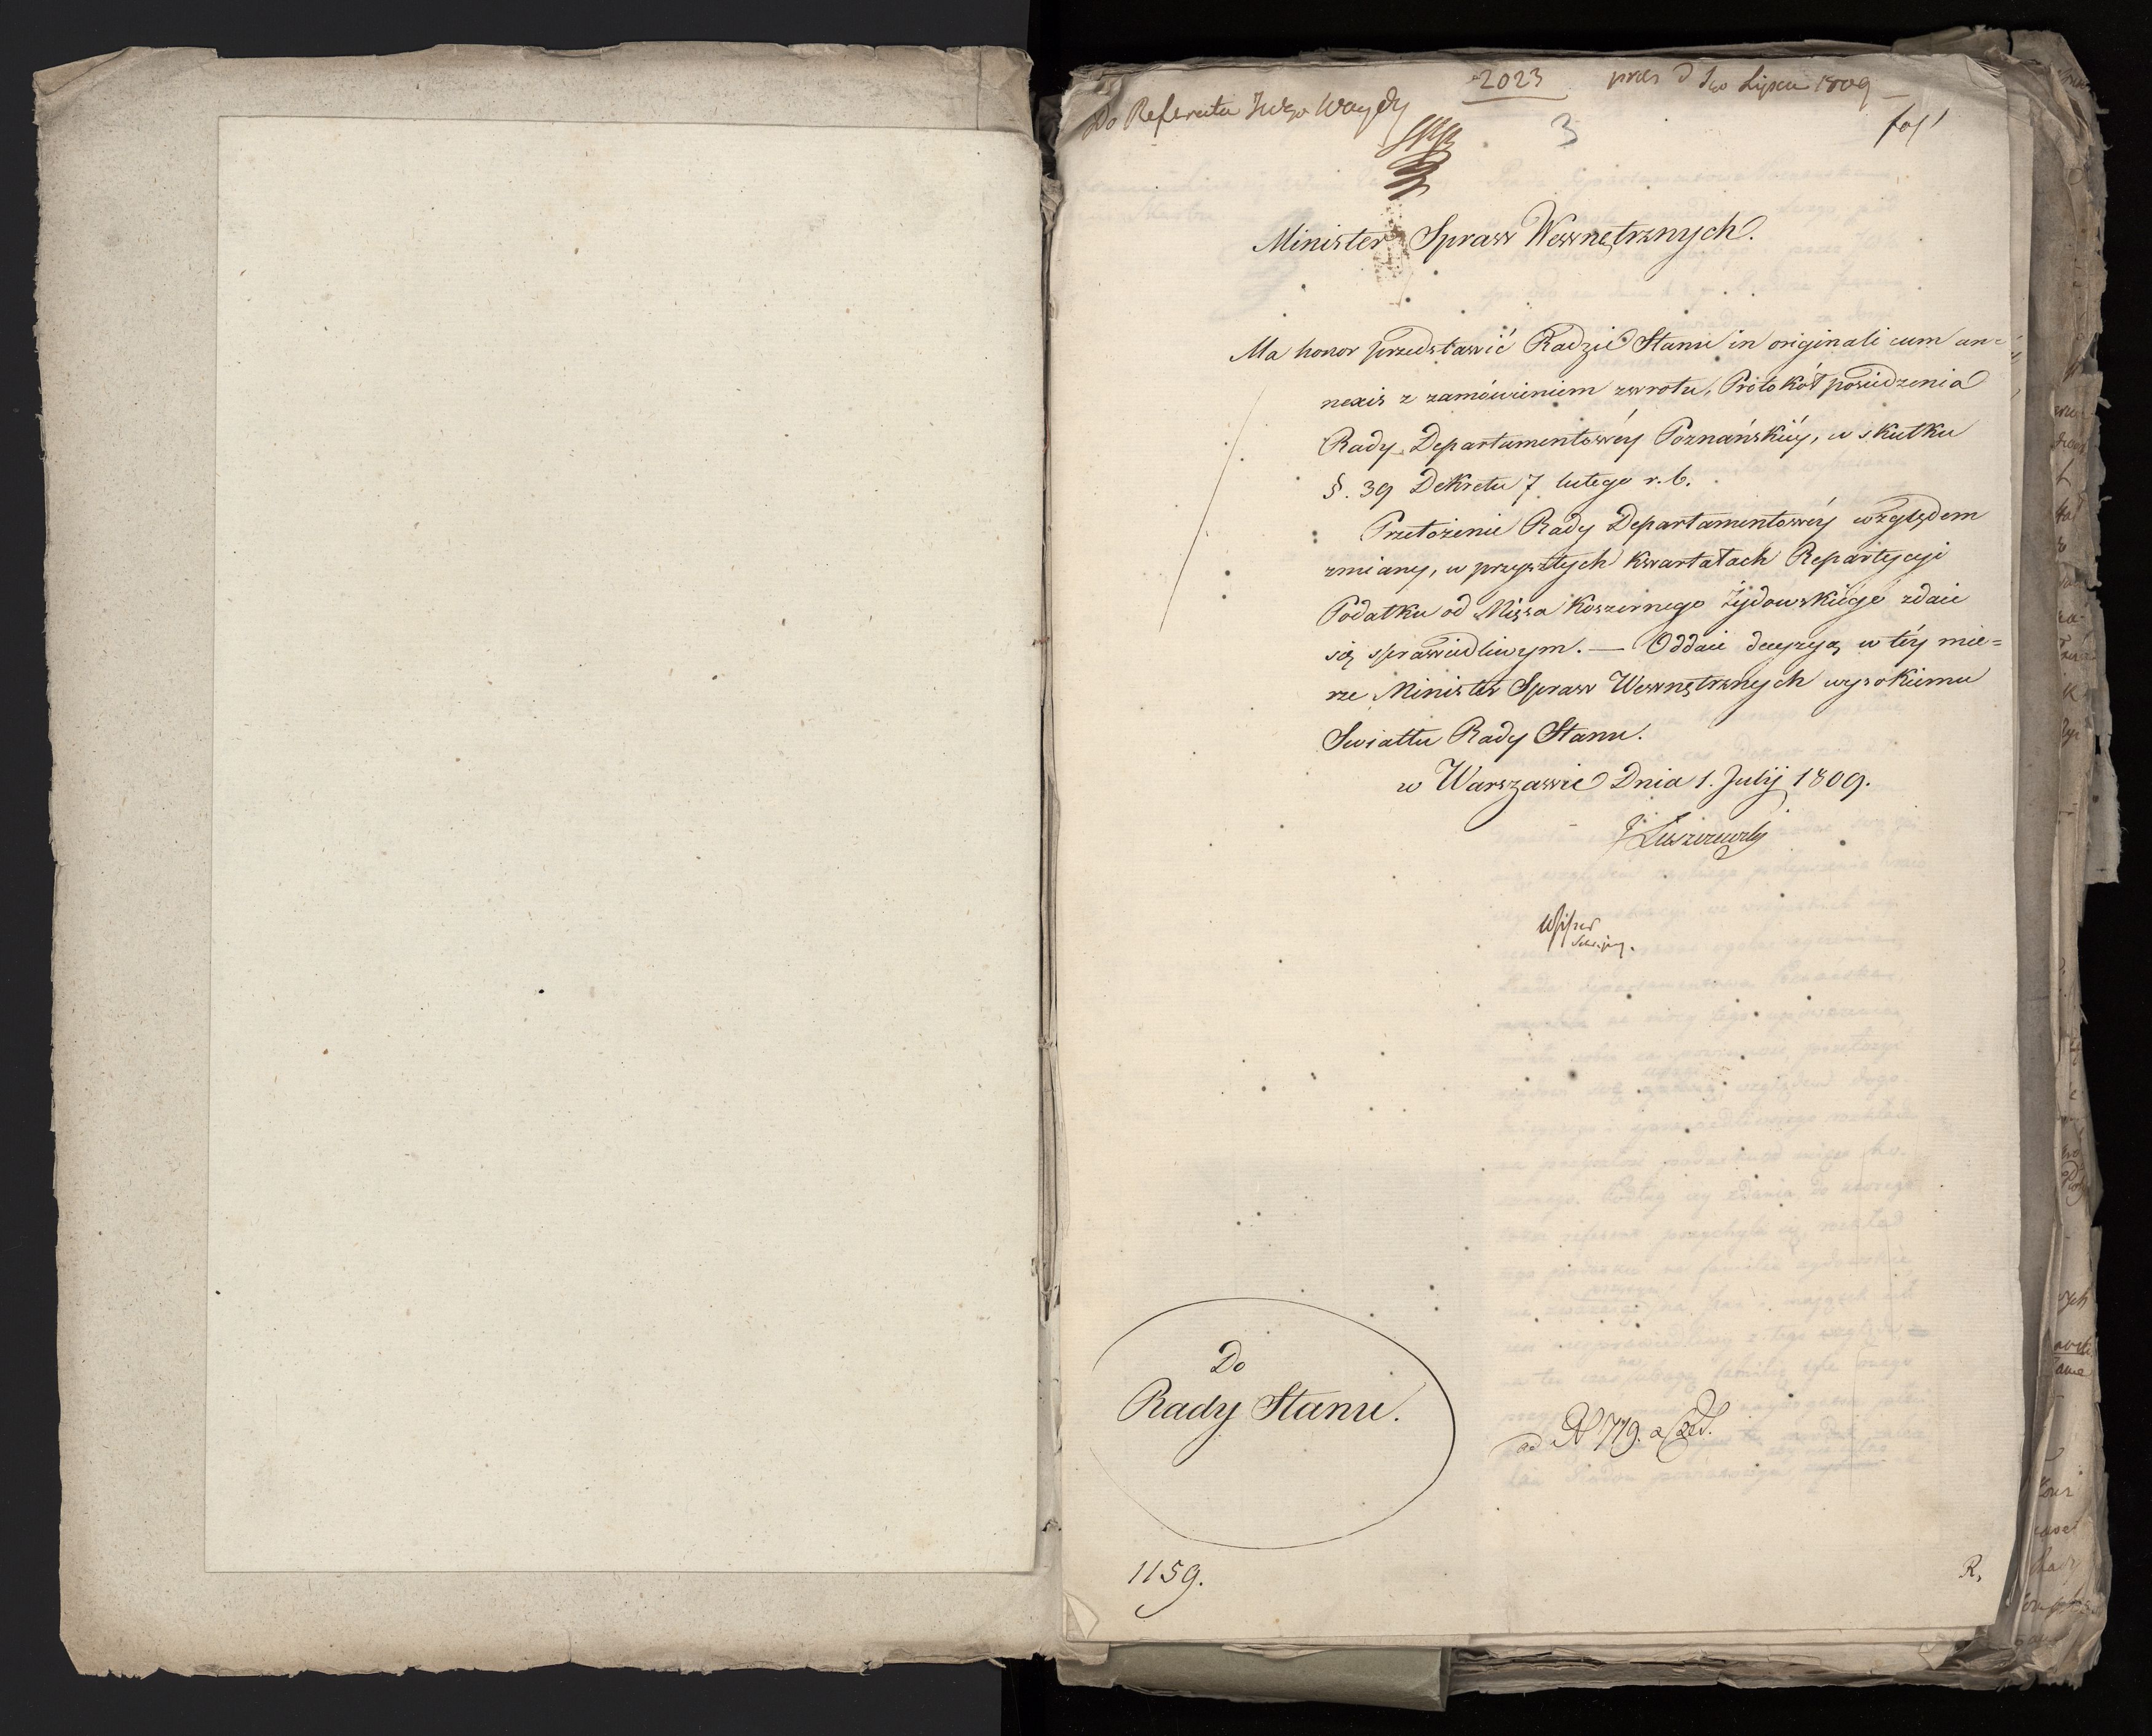 2023
pres d 1go Lipca 1809
Do Referatu JWgo Wagdy
3
fol 1
Minister Spraw Wewnętrznych.
Ma honor przedstawić Radzie Stanu in originali cum an=
nexis z zamówieniem zwrotu, Protokół posiedzenia
Rady Departamentowéy Poznańskiéy, w skutku
§. 39 Dekretu 7 lutego r. b.
Przełożenie Rady Departamentowéy względem
zmiany, w przyszłych kwartałach Repartycyi
Podatku od Mięsa Koszernego Żydowskiego zdaie
się sprawiedliwym. — Oddaie decyzyą w téy mie=
rze Minister Spraw Wewnętrznych wysokiemu
Swiatłu Rady Stanu.
w Warszawie Dnia 1. Julij 1809.
J Łuszczewski
Do
Rady Stanu.
ad N 779.
1159.
R.